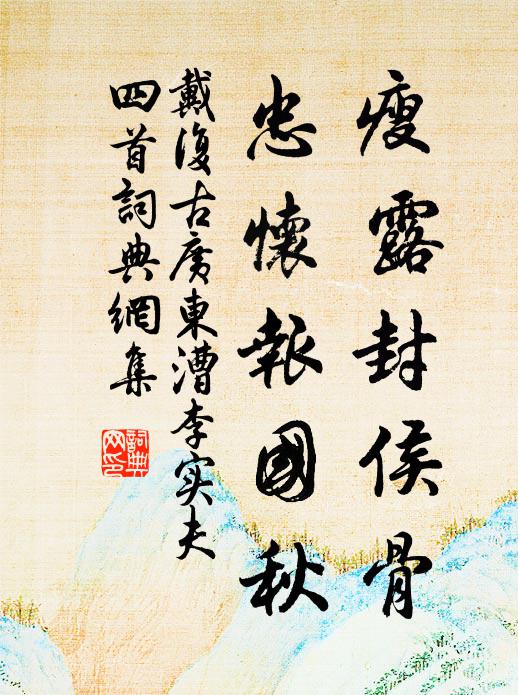 瘦露封侯骨
忠懷報國秋
戴復古廣東漕李实夫
四首詞典網集
詞典
网印